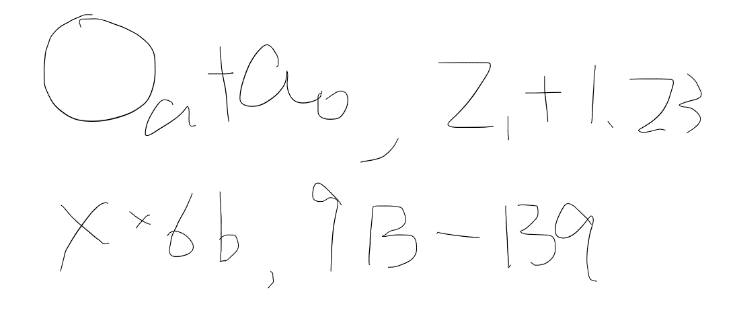 O_a + a_0, Z_1 + 1.23
X × 6b, 9B - B9